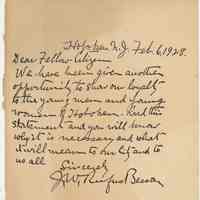 Hoboken N.J. Feb. 6, 1928.
Dear Fellow Citizen
We have been given another
opportunity to show our loyalty
to the young men and young
women of Hoboken. Read this
statement and you will know
why it is necessary and what
it will mean to our City and to
us all
Sincerely
J. W. Rufus Besson